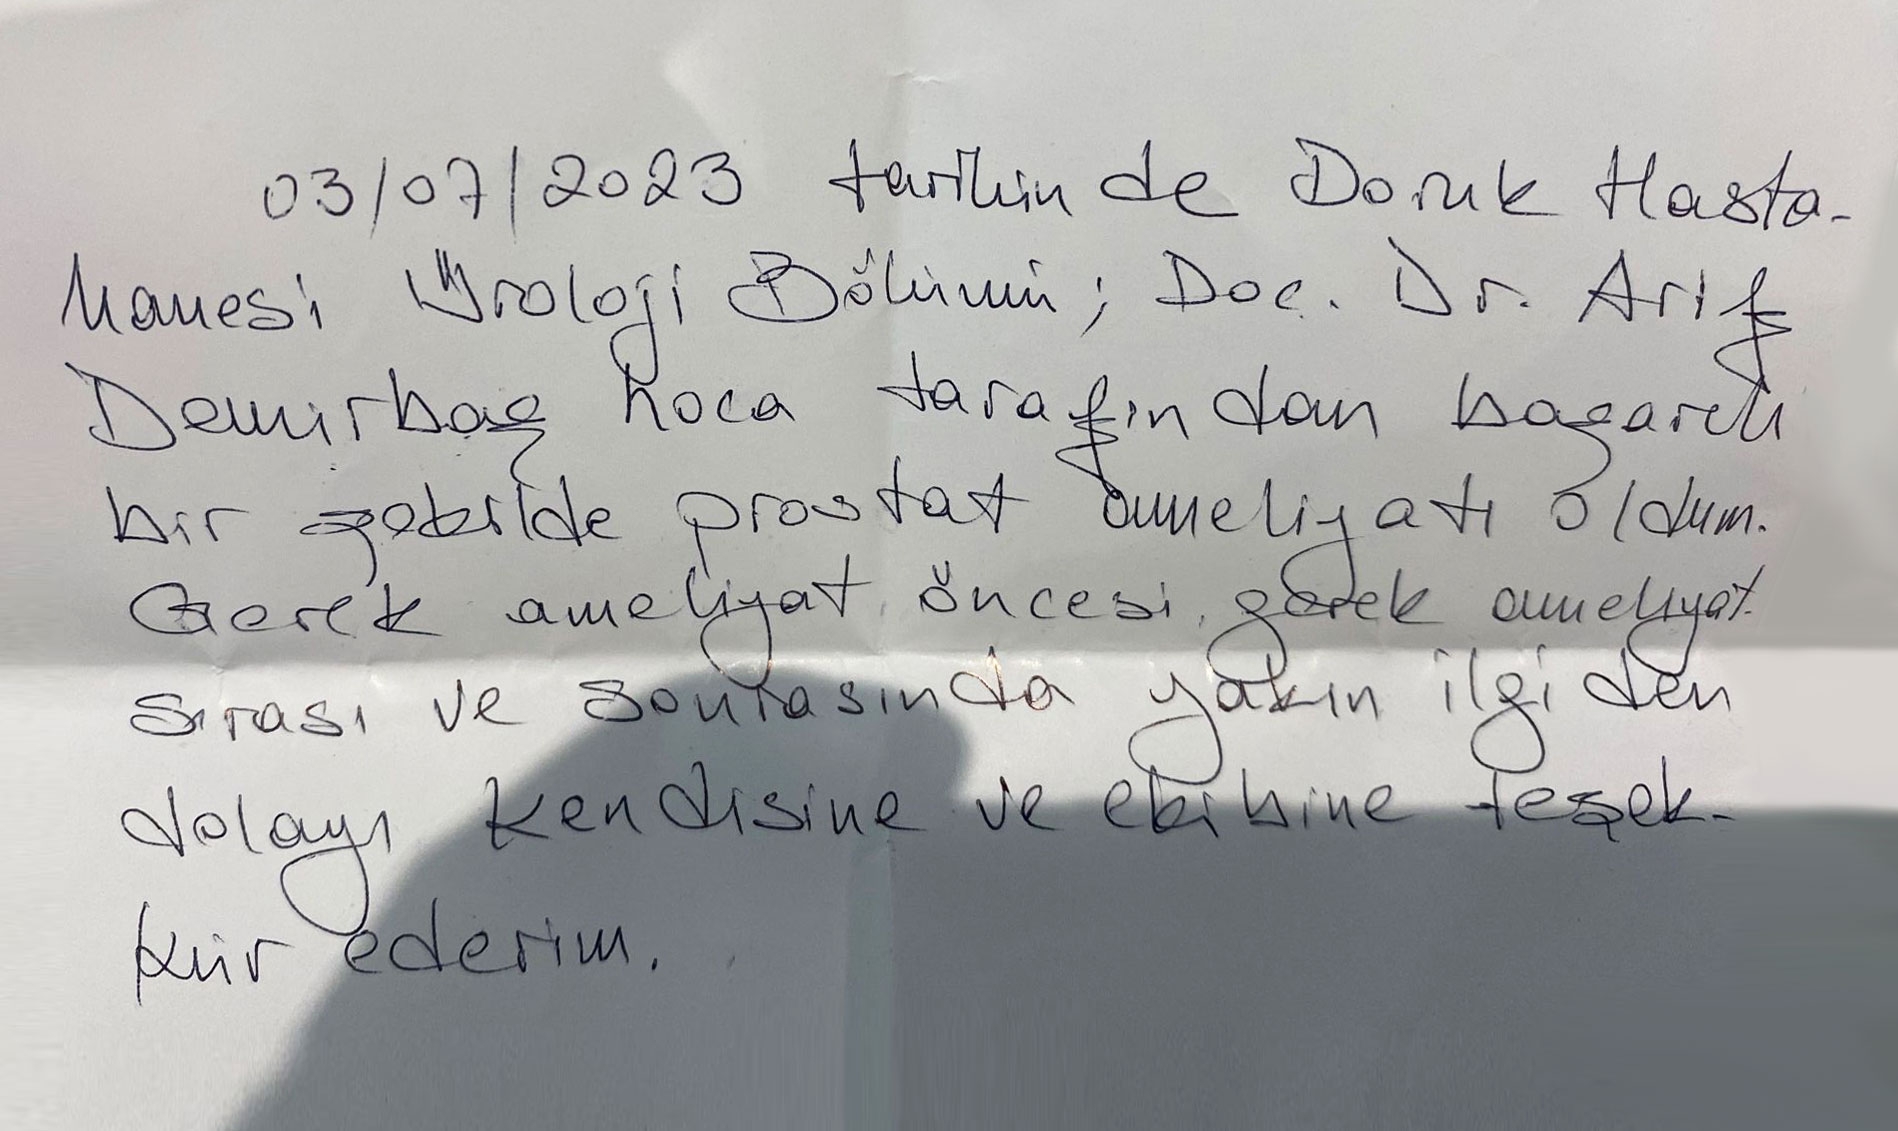 03/07/2023 tarihinde Doruk Hasta-
hanesi Üroloji Bölümü; Doc. Dr. Arif
Demirbaş hoca tarafından başarılı
bir şekilde prostat ameliyatı oldum.
Gerek ameliyat öncesi, gerek ameliyat
sırası ve sonrasında yakın ilgiden
dolayı kendisine ve ekibine teşek-
kür ederim.